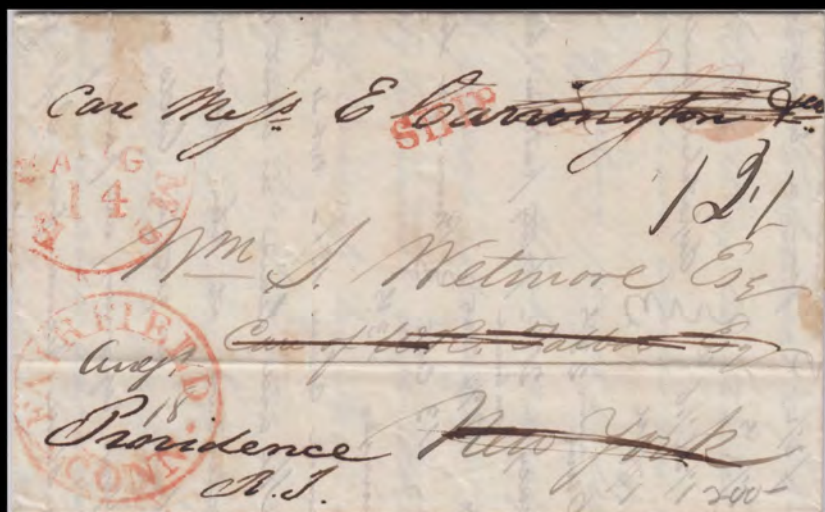 Care Messrs. E Carrington & Co.
SHIP
AUG
14
12½
Wm S. Wetmore Esq
Care of W.R. Talbot Esq
FAIRFIELD CONN.
Augst
18
Providence New York
R.I.
1200-